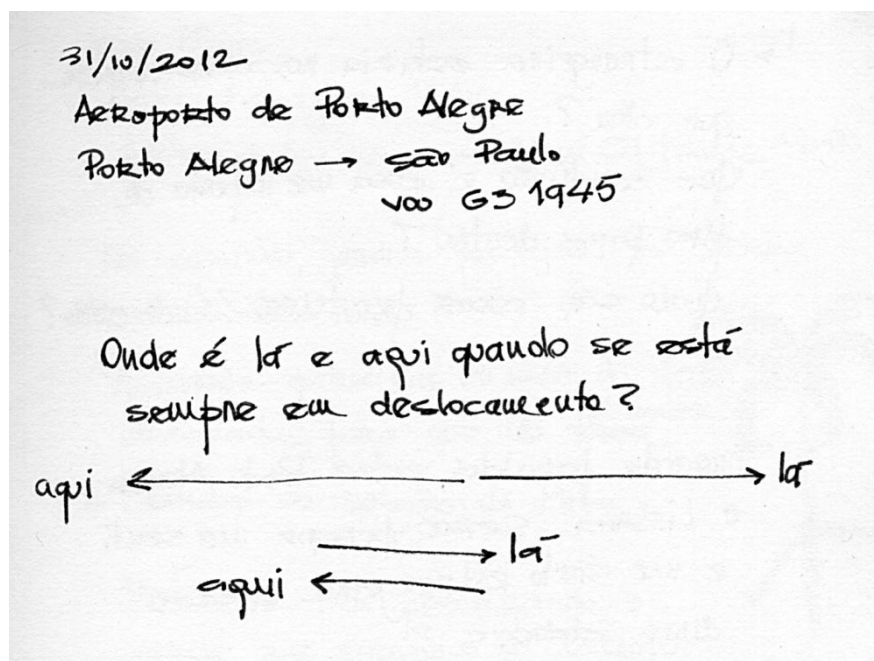 31/10/2012
Aeroporto de Porto Alegre
Porto Alegre → São Paulo
voo G3 1945
Onde é lá e aqui quando se está
sempre em deslocamento?
aqui ← → lá
→ lá
aqui ←